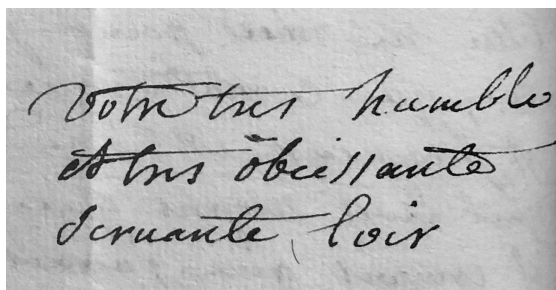 Votre tres humble
et tres obeissante
servante loir